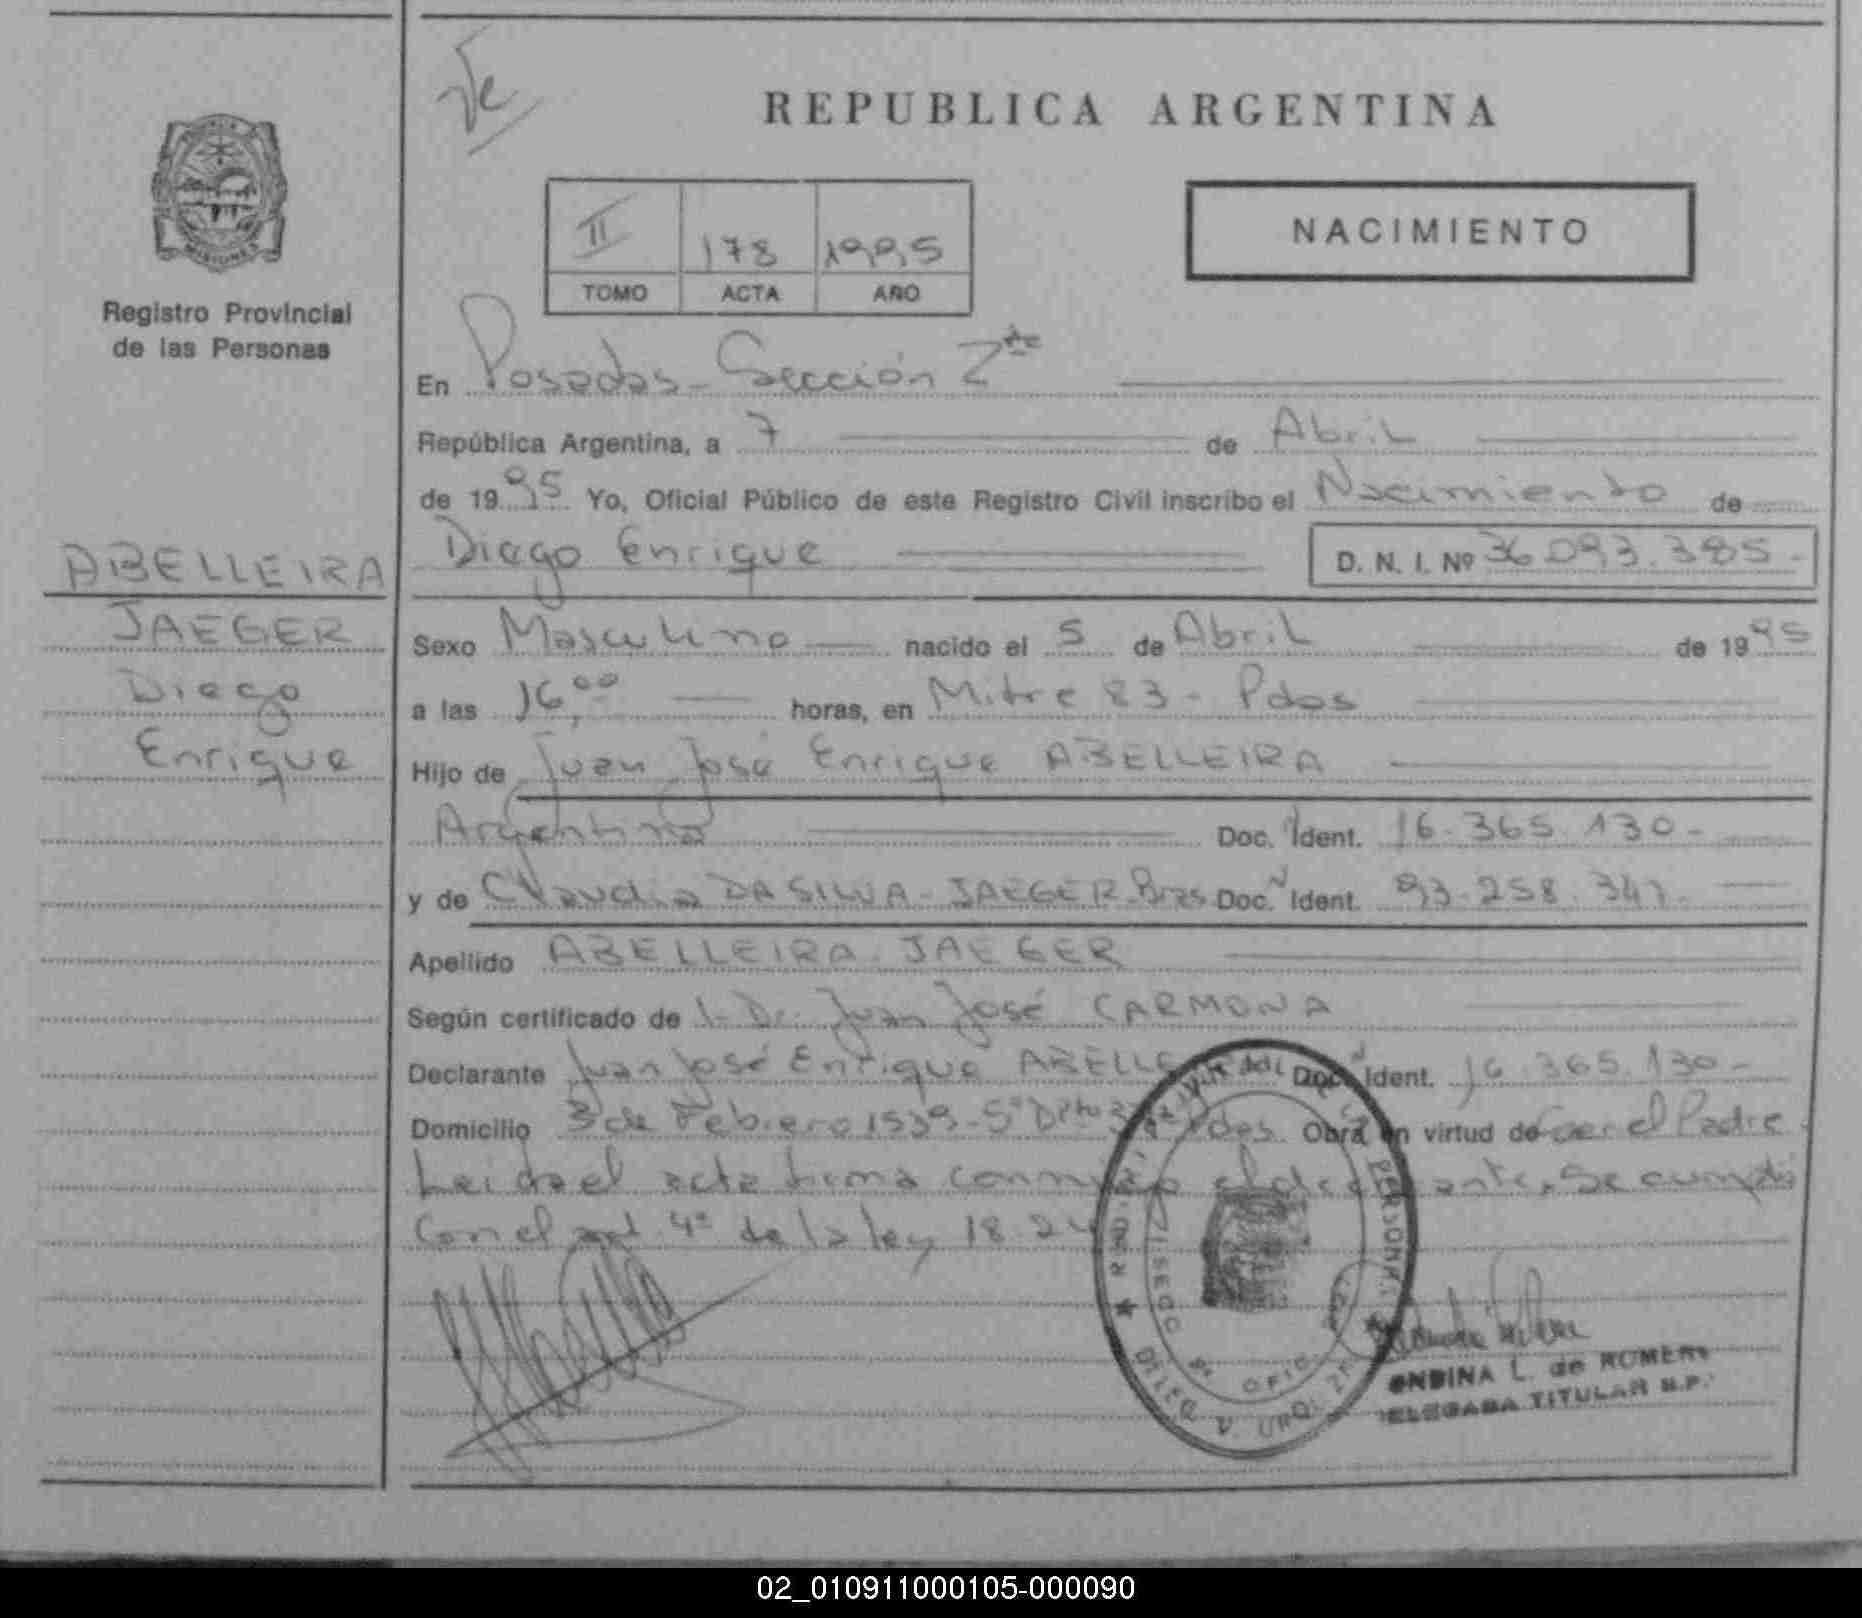 REPUBLICA ARGENTINA
II 178 1995
TOMO ACTA AÑO
NACIMIENTO
Registro Provincial
de las Personas
ABELLEIRA
JAEGER
Diego
Enrique
En Posadas - Sección 2da
República Argentina, a 7 de Abril
de 1995 Yo, Oficial Público de este Registro Civil inscribo el Nacimiento de
Diego Enrique D. N. I. Nº 36.093.385.-
Sexo Masculino nacido el 5 de Abril de 1995
a las 16,00 horas, en Mitre 83 - Pdas
Hijo de Juan José Enrique ABELLEIRA
Argentina Doc. Ident. 16.365.130.-
y de Claudia DA SILVA - JAEGER - Bras Doc. Ident. 93.258.341.
Apellido ABELLEIRA JAEGER
Según certificado de l. Dr. Juan José CARMONA
Declarante Juan José Enrique Doc. Ident. 16.365.130.-
Domicilio 3 de Febrero 1539 - 5º Pdas. Obra en virtud de Ser el Padre.
Leida el acta firma conmigo el declarante. Se cumplió
Con el art. 4º de la ley 18.24
L. de ROMERO
TITULAR R.P.
02_010911000105-000090